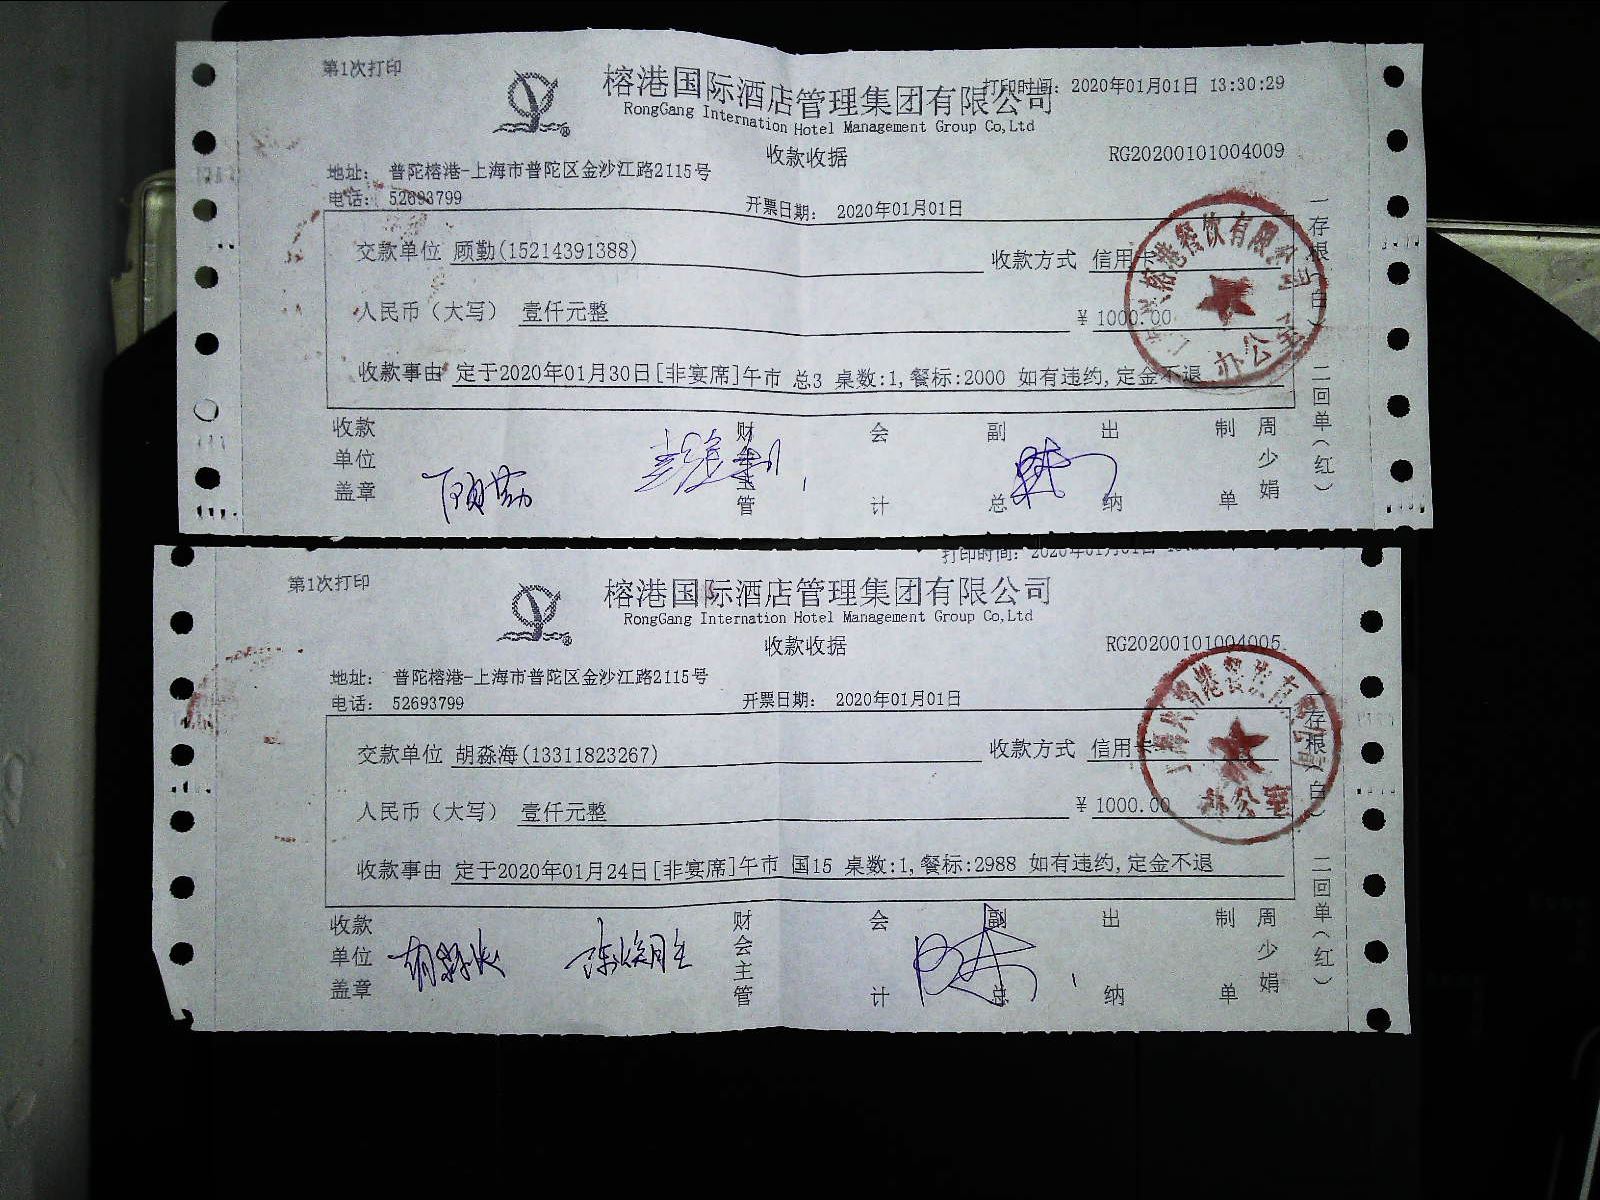 第1次打印
榕港国际酒店管理集团有限公司
打印时间: 2020年01月01日 13:30:29
RongGang Internation Hotel Management Group Co,Ltd
收款收据
RG20200101004009
地址: 普陀榕港-上海市普陀区金沙江路2115号
电话: 52693799
开票日期: 2020年01月01日
交款单位 顾勤(15214391388) 收款方式 信用卡
人民币（大写） 壹仟元整 ¥ 1000.00
收款事由 定于2020年01月30日[非宴席]午市 总3 桌数:1,餐标:2000 如有违约,定金不退
收款单位盖章 顾勤 财会主管 会计 副总 出纳 制单 周少娟
一存根（白） 二回单（红）
榕港餐饮有限公司
办公室
打印时间: 2020年01月01日
第1次打印
榕港国际酒店管理集团有限公司
RongGang Internation Hotel Management Group Co,Ltd
收款收据
RG20200101004005
地址: 普陀榕港-上海市普陀区金沙江路2115号
电话: 52693799
开票日期: 2020年01月01日
交款单位 胡淼海(13311823267) 收款方式 信用卡
人民币（大写） 壹仟元整 ¥ 1000.00
收款事由 定于2020年01月24日[非宴席]午市 国15 桌数:1,餐标:2988 如有违约,定金不退
收款单位盖章 胡淼海 财会主管 会计 副总 出纳 制单 周少娟
一存根（白） 二回单（红）
办公室